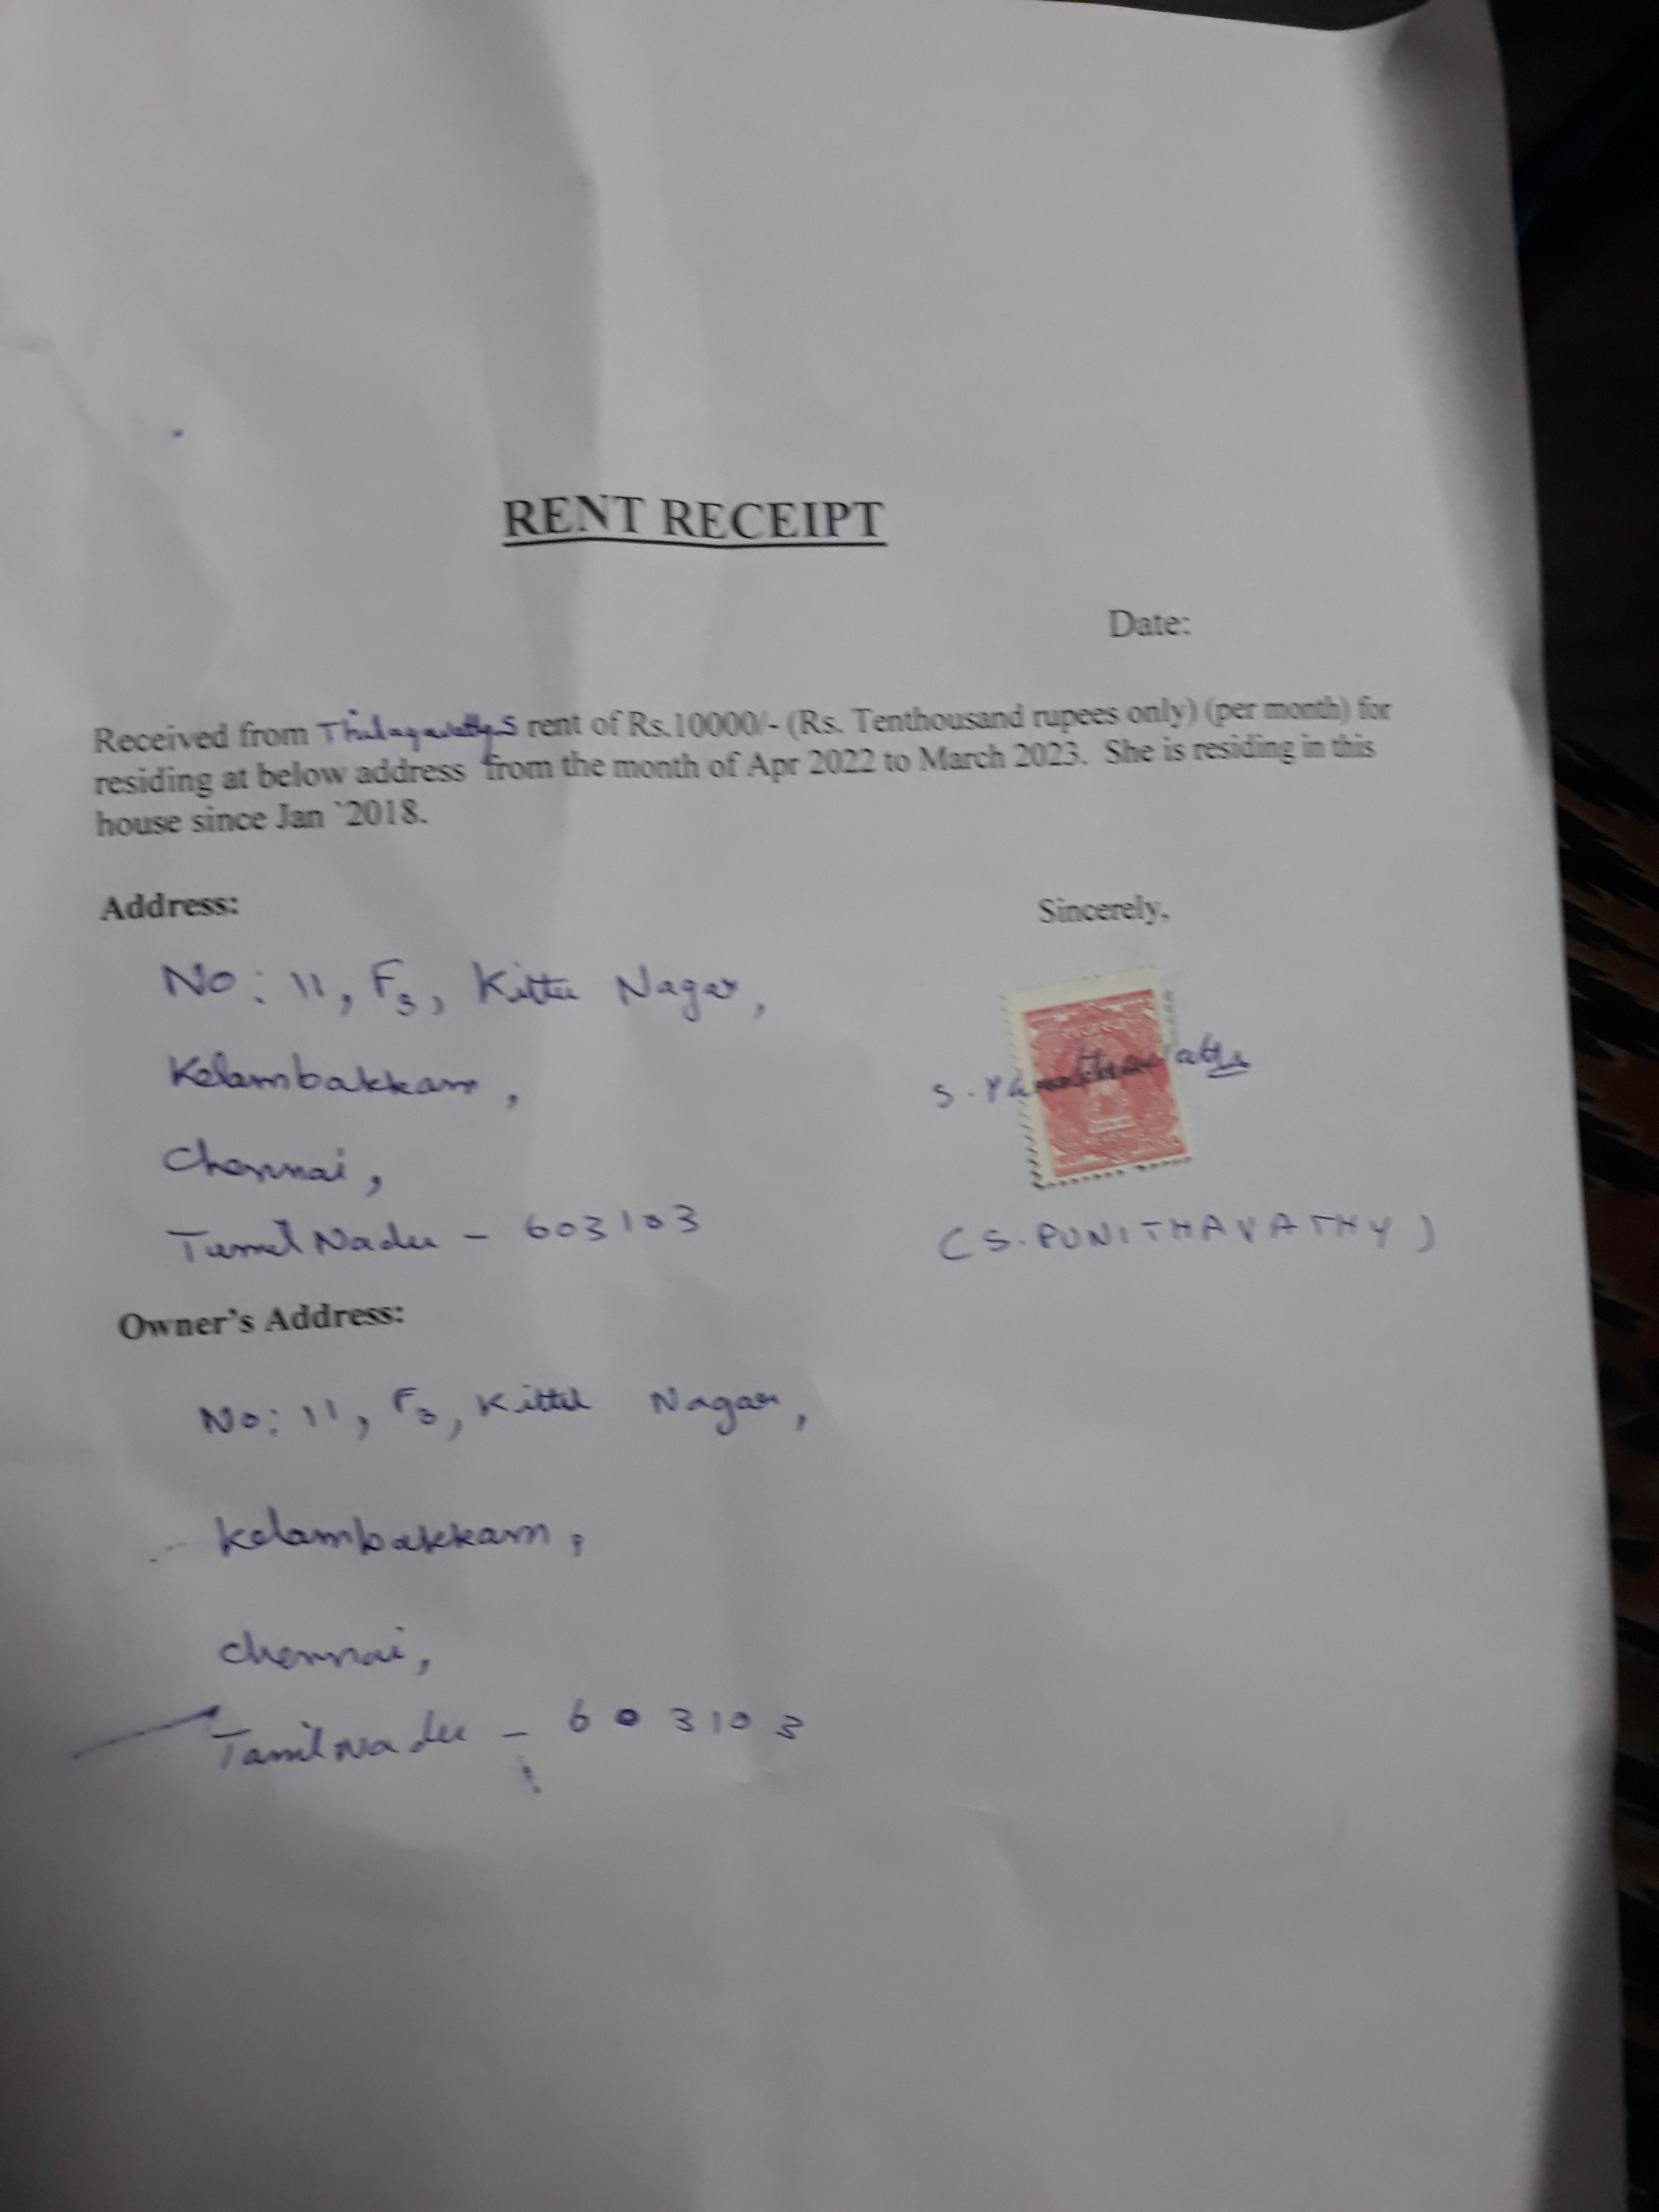 RENT RECEIPT
Date:
Received from Thilagavathy.S rent of Rs.10000/- (Rs. Tenthousand rupees only) (per month) for
residing at below address from the month of Apr 2022 to March 2023. She is residing in this
house since Jan `2018.
Address:
Sincerely,
No: 11, F3, Kittu Nagar,
Kelambakkam,
Chennai,
Tamil Nadu - 603103
(S. PUNITHAVATHY)
Owner's Address:
No: 11, F3, Kittu Nagar,
Kelambakkam,
Chennai,
Tamil Nadu - 603103